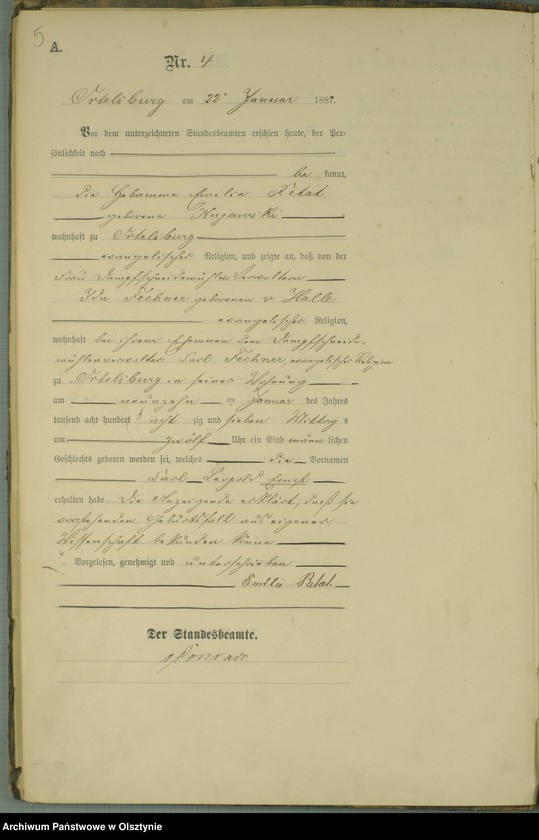 5
A.
Nr. 4
Ortelsburg am 22n Januar 1887.
Vor dem unterzeichneten Standesbeamten erschien heute, der Per-
sönlichkeit nach
be kannt,
die Hebamme Emilie Retat
geborene Kujawski
wohnhaft zu Ortelsburg
evangelischer Religion, und zeigte an, daß von der
Frau Dampfschneidemühlen Verwaltern
Ida Fechner geborenen v Halle
evangelischer Religion,
wohnhaft bei ihrem Ehemann dem Dampfschneide-
mühlenverwalter Carl Fechner, evangelischer Religion
zu Ortelsburg in seiner Wohnung
am neunzehn ten Januar des Jahres
tausend acht hundert acht zig und sieben Mittag s
um zwölf Uhr ein Kind männ lichen
Geschlechts geboren worden sei, welches die Vornamen
Carl Leopold Ernst
erhalten habe. Die Anzeigende erklärt, daß sie
vorstehenden Geburtsfall aus eigener
Wissenschaft bekunden könne
Vorgelesen, genehmigt und unterschrieben
Emilie Retat.
Der Standesbeamte.
Archiwum Państwowe w Olsztynie